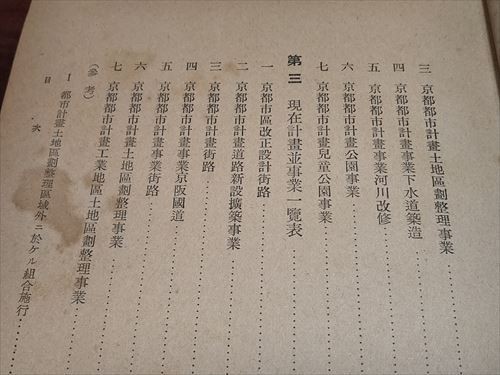 三 京都都市計畫土地區劃整理事業
四 京都都市計畫事業下水道築造
五 京都都市計畫事業河川改修
六 京都都市計畫公園事業
七 京都都市計畫兒童公園事業
第三 現在計畫並事業一覽表
一 京都市區改正設計街路
二 京都都市計畫道路新設擴築事業
三 京都都市計畫街路
四 京都都市計畫事業京阪國道
五 京都都市計畫事業街路
六 京都都市計畫土地區劃整理事業
七 京都都市計畫工業地區土地區劃整理事業
(參考)
I 都市計畫土地區劃整理區域外ニ於ケル組合施行
目次